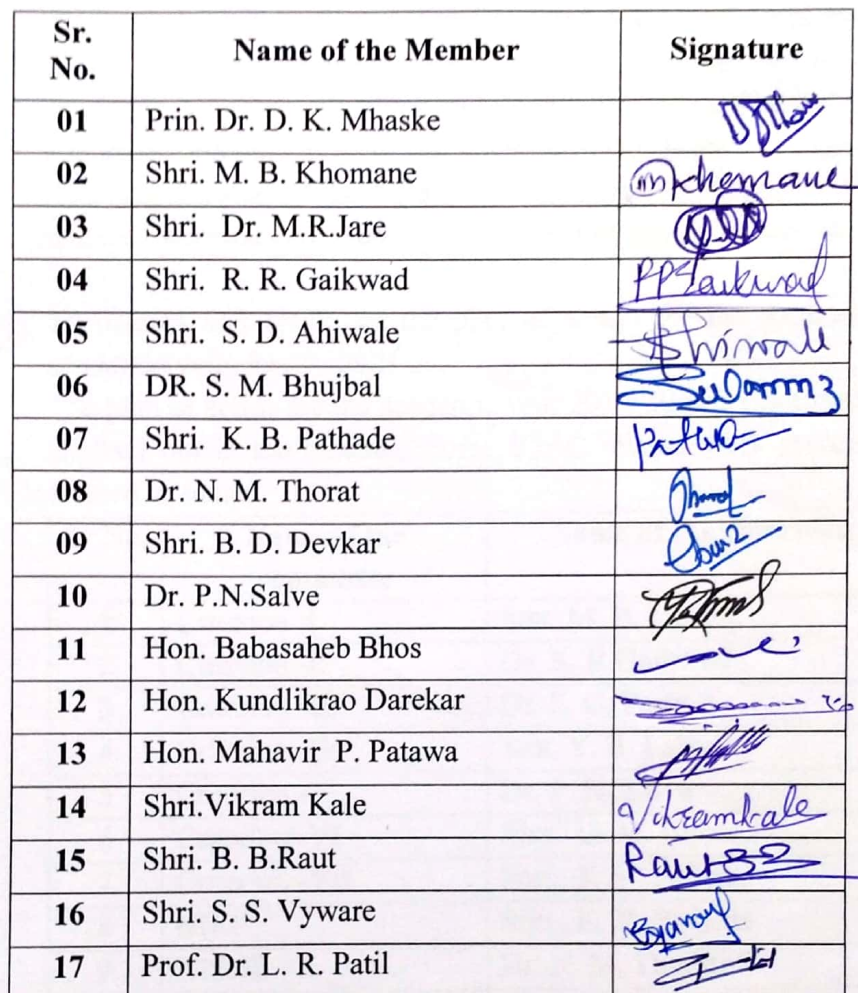 Sr. No. Name of the Member Signature
01 Prin. Dr. D. K. Mhaske
02 Shri. M. B. Khomane mkhomane
03 Shri. Dr. M.R.Jare
04 Shri. R. R. Gaikwad RRGaikwad
05 Shri. S. D. Ahiwale
06 DR. S. M. Bhujbal
07 Shri. K. B. Pathade
08 Dr. N. M. Thorat
09 Shri. B. D. Devkar
10 Dr. P.N.Salve
11 Hon. Babasaheb Bhos
12 Hon. Kundlikrao Darekar
13 Hon. Mahavir P. Patawa
14 Shri.Vikram Kale Vikramkale
15 Shri. B. B.Raut Raut BB
16 Shri. S. S. Vyware
17 Prof. Dr. L. R. Patil